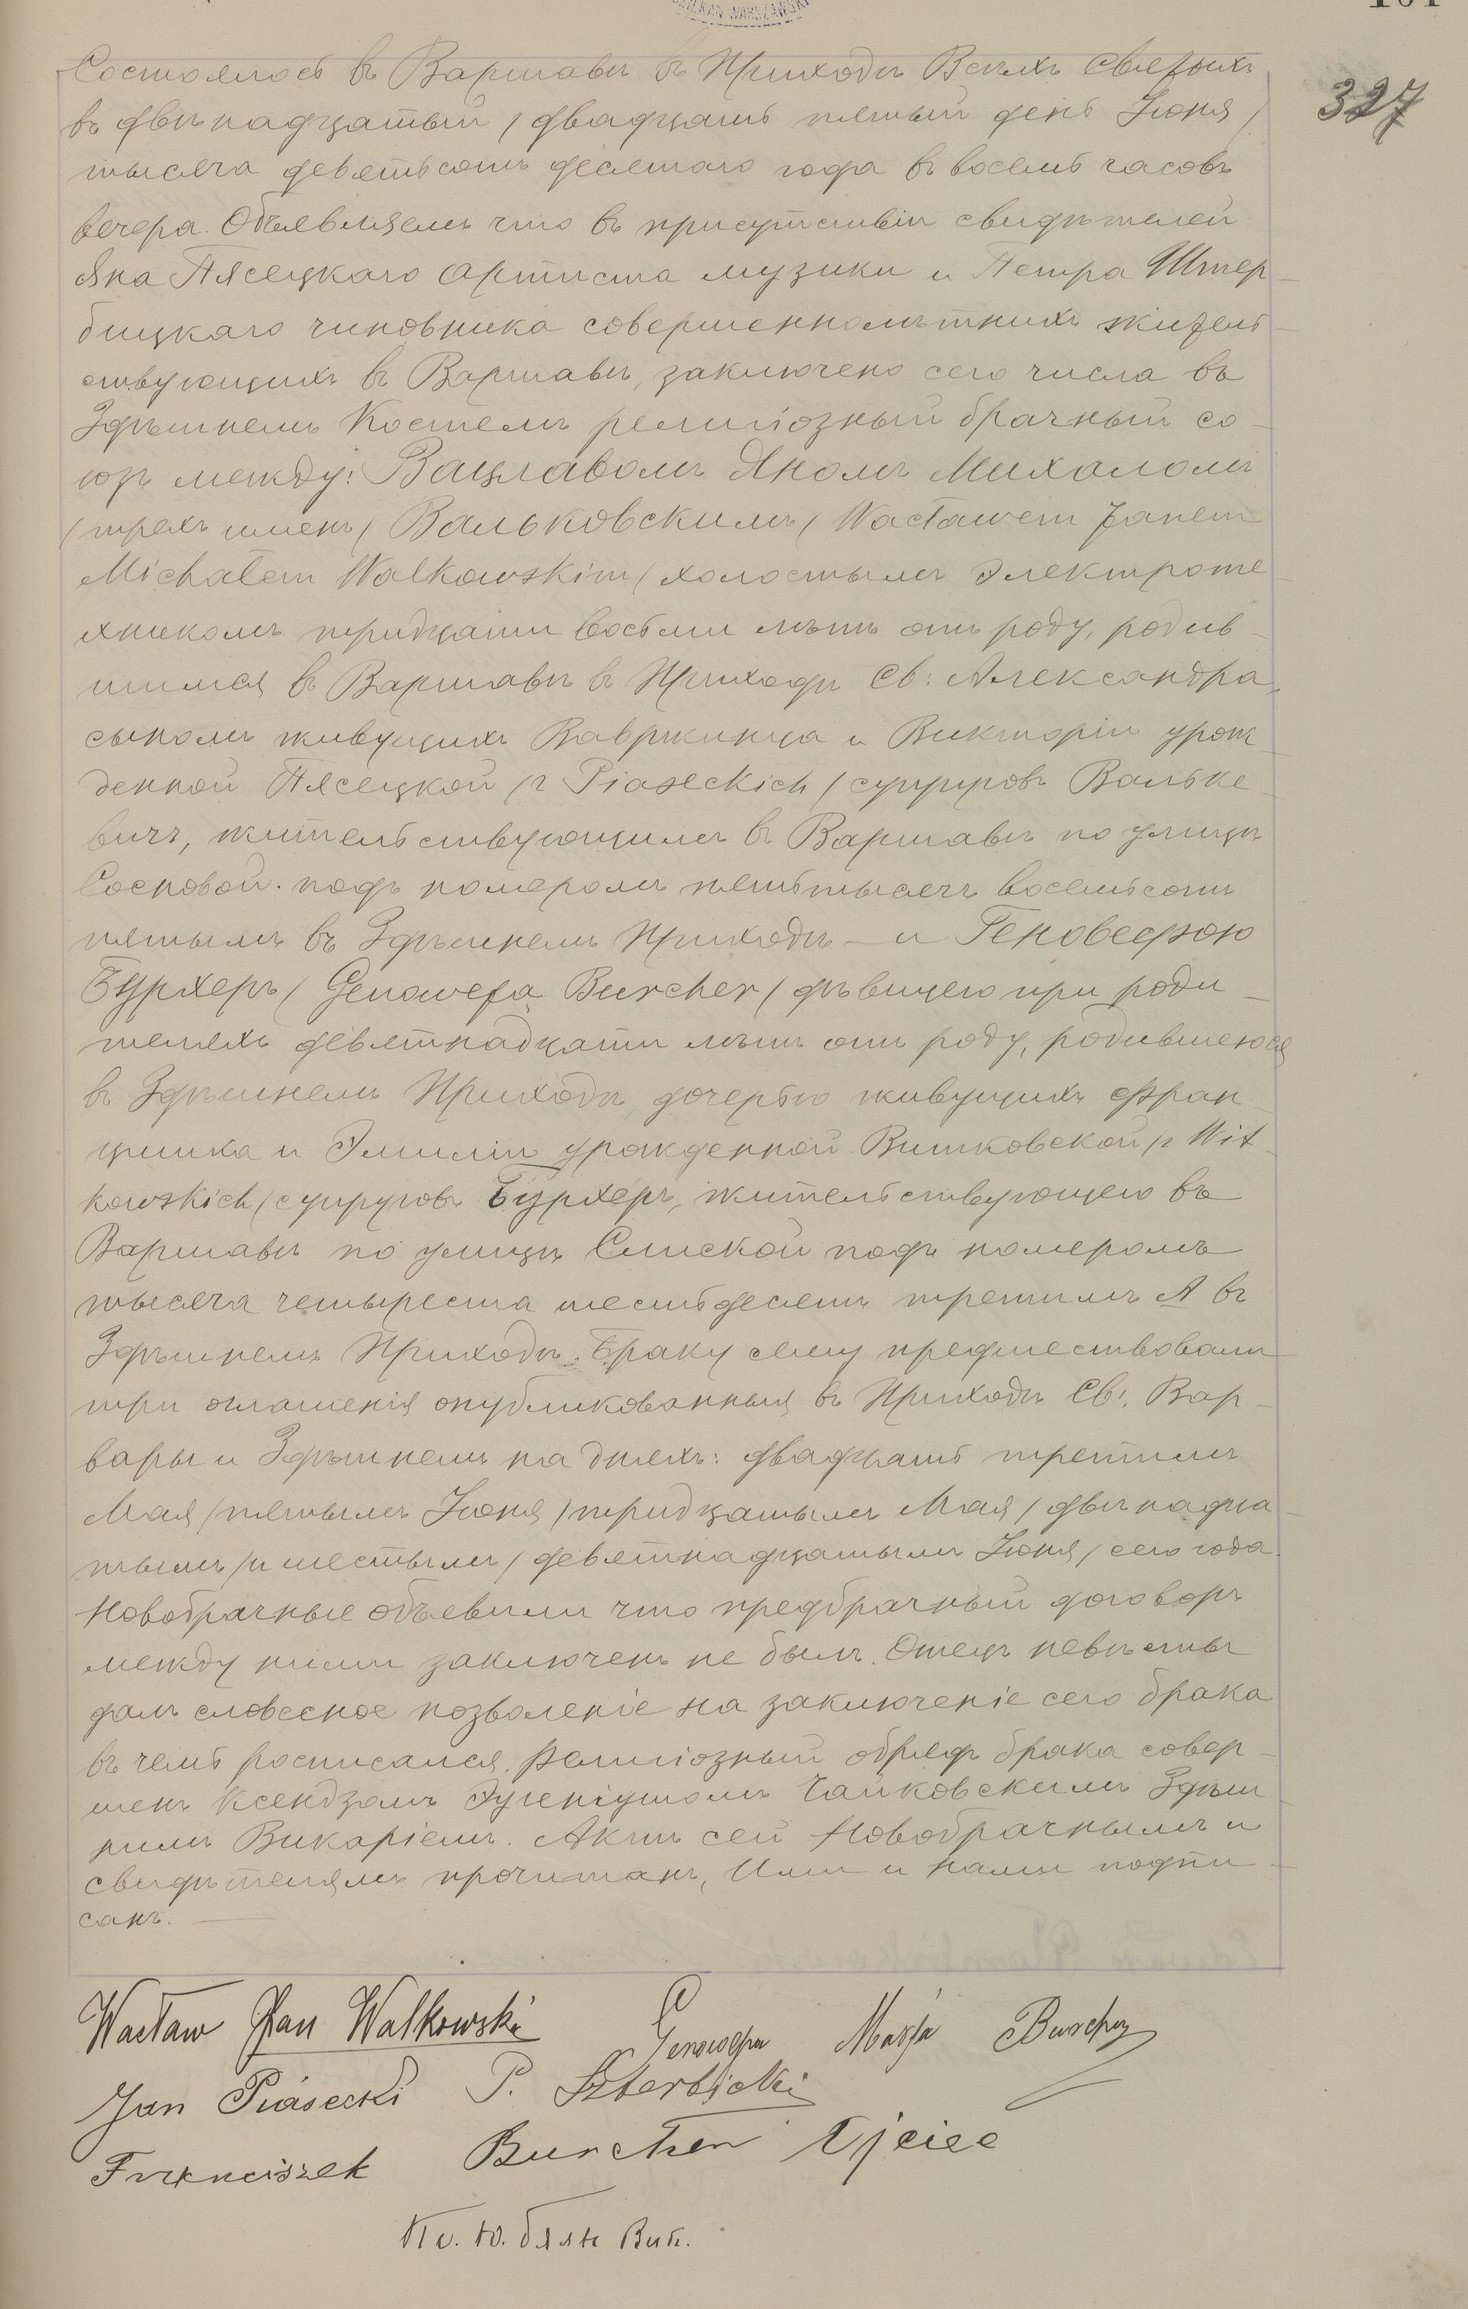 327
Состоялось въ Варшавѣ въ Приходѣ Всѣхъ Святыхъ
въ двѣнадцатый / двадцать пятый день Іюня /
тысяча девятьсотъ десятаго года въ восемь часовъ
вечера. Объявляемъ что въ присутствіи свидѣтелей
Яна Пясецкаго артиста музыки и Петра Штер-
бицкаго чиновника совершеннолѣтнихъ житель-
ствующихъ въ Варшавѣ, заключено сего числа въ
Здѣшнемъ Костелѣ религіозный брачный со-
юзъ между: Вацлавомъ Яномъ Михаломъ
/ трехъ именъ / Вальковскимъ / Wacławem Janem
Michałem Walkowskim / холостымъ электроте-
хникомъ тридцати восьми лѣтъ отъ роду, родив-
шимся въ Варшавѣ въ Приходѣ Св: Александра,
сыномъ живущихъ Вавржинца и Викторіи урож-
денной Пясецкой / z Piaseckich / супруговъ Вальке-
вичъ, жительствующимъ въ Варшавѣ по улицѣ
Сосновой подъ номеромъ пятьтысячъ восемьсотъ
пятымъ въ Здѣшнемъ Приходѣ — и Геновефою
Бурхеръ / Genowefa Burcher / дѣвицею при роди-
теляхъ девятнадцати лѣтъ отъ роду, родившеюся
въ Здѣшнемъ Приходѣ, дочерью живущихъ Фран-
цишка и Эмиліи урожденной Витковской / z Wit-
kowskich / супруговъ Бурхеръ, жительствующею въ
Варшавѣ по улицѣ Слиской подъ номеромъ
тысяча четыреста шестьдесятъ третимъ А въ
Здѣшнемъ Приходѣ. Браку сему предшествовали
три оглашенія опубликованныя въ Приходѣ Св: Вар-
вары и Здѣшнемъ на дняхъ: двадцать третимъ
Мая / пятымъ Іюня / тридцатымъ Мая / двѣнадца-
тымъ / и шестымъ / девятнадцатымъ Іюня / сего года.
Новобрачные объявили что предбрачный договоръ
между ними заключенъ не былъ. Отецъ невѣсты
далъ словесное позволеніе на заключеніе сего брака
въ чемъ росписался. Религіозный обрядъ брака совер-
шенъ Ксендзомъ Эугеніушомъ Чайковскимъ Здѣш-
нимъ Викаріемъ. Актъ сей Новобрачнымъ и
свидѣтелямъ прочитанъ, Ими и нами подпи-
санъ.
Wacław Jan Walkowski Genowefa Marja Burcher
Jan Piasecki P. Szterbicki
Franciszek Burcher Ojciec
Вик.